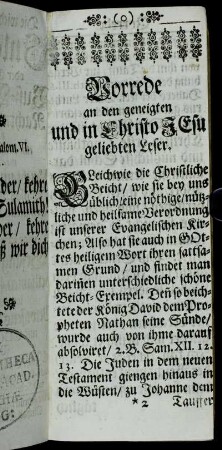 :(o):
Vorrede
an den geneigten
und in Christo JEsu
geliebten Leser.
GLeichwie die Christliche
Beicht/ wie sie bey uns
üblich/eine nöthige/nütz-
liche und heilsame Verordnung
ist unserer Evangelischen Kir-
chen; Also hat sie auch in GOt-
tes heiligem Wort ihren sattsa-
men Grund/ und findet man
dariñen unterschiedliche schöne
Beicht-Exempel. Deñ so beich-
tete der König David dem Pro-
pheten Nathan seine Sünde/
wurde auch von ihme darauf
absolviret/ 2.B. Sam.XII. 12.
13. Die Juden in dem neuen
Testament giengen hinaus in
die Wüsten/ zu Johanne dem
*2 Tauffer
alem.VI.
der/ kehre
Sulamith!
er/ kehre
ß wir dich
THECA
ACAD.
G: